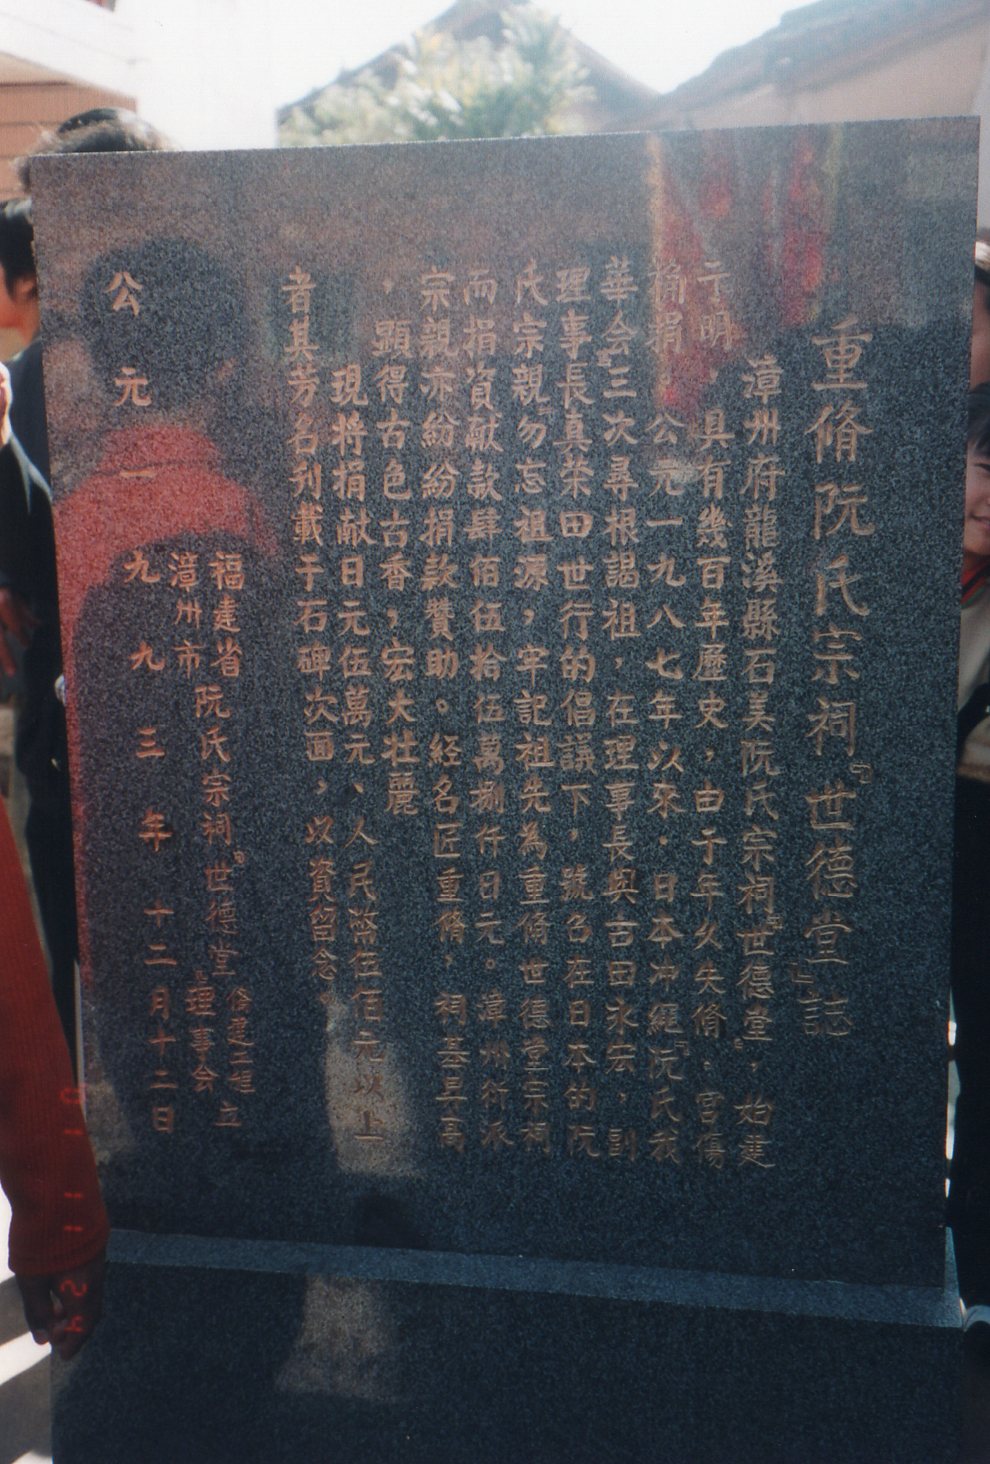 重脩阮氏宗祠『世德堂』誌
漳州府龍溪縣石美阮氏宗祠『世德堂』，始建
于明 具有幾百年歷史，由于年久失脩．宮傷
公元一九八七年以來．日本冲繩『阮氏我
華会』三次尋根謁祖，在理事長與古田永宏，副
理事長真荣田世行的倡議下，號召在日本的阮
氏宗親勿忘祖源，牢記祖先為重脩世德堂宗祠
而捐資献款肆佰伍拾伍萬捌仟日元。漳州衍派
宗親亦紛紛捐款贊助。经名匠重脩，祠基早高
，顯得古色古香，宏大壮麗
現将捐献日元伍萬元、人民幣伍佰元以上
者其芳名刋載于石碑次面，以資留念
福建省
漳州市
阮氏宗祠『世德堂』
脩建工程
理事会
立
公元一九九三年十二月十二日